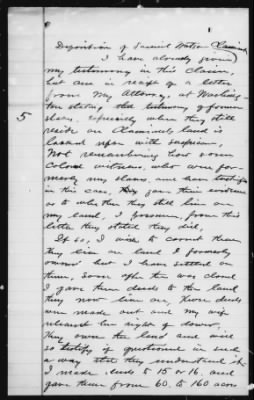 1
Deposition of Samuel Water Claimant
I have already given
my testimony in this claim,
but am in receipt of a letter
from my Attorney, at Washing-
ton stating that testimony of former
slaves, especially when they still
reside on Claimants land is
looked upon with suspicion,
Not remembering how
colored witnesses, who were for-
merly my slaves, and have testified
in this case, they gave their evidence
as to whether they still live on
my land, I presume, from this
letter they stated they did,
If so, I wish to correct them
they live on land I formerly
owned but I have settled on
them, soon after the war closed
I gave them deeds to the land
they now live on, these deeds
were made out and my wife
released her right of dower,
They own the land and will
so testify if questioned in such
a way that they understand it.
I made deeds to 15 or 16. and
gave them from 60 to 160 acres
5